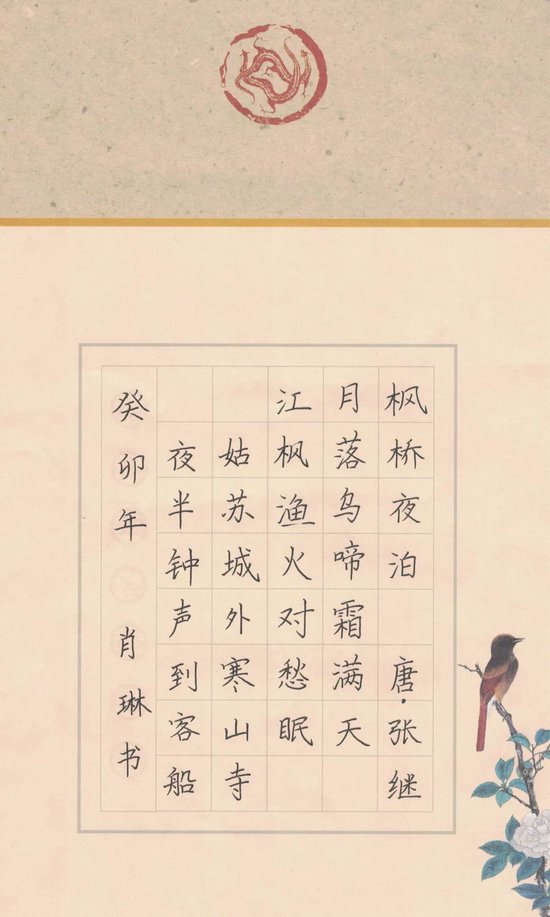 枫桥夜泊 唐·张继
月落乌啼霜满天
江枫渔火对愁眠
姑苏城外寒山寺
夜半钟声到客船
癸卯年 肖琳书